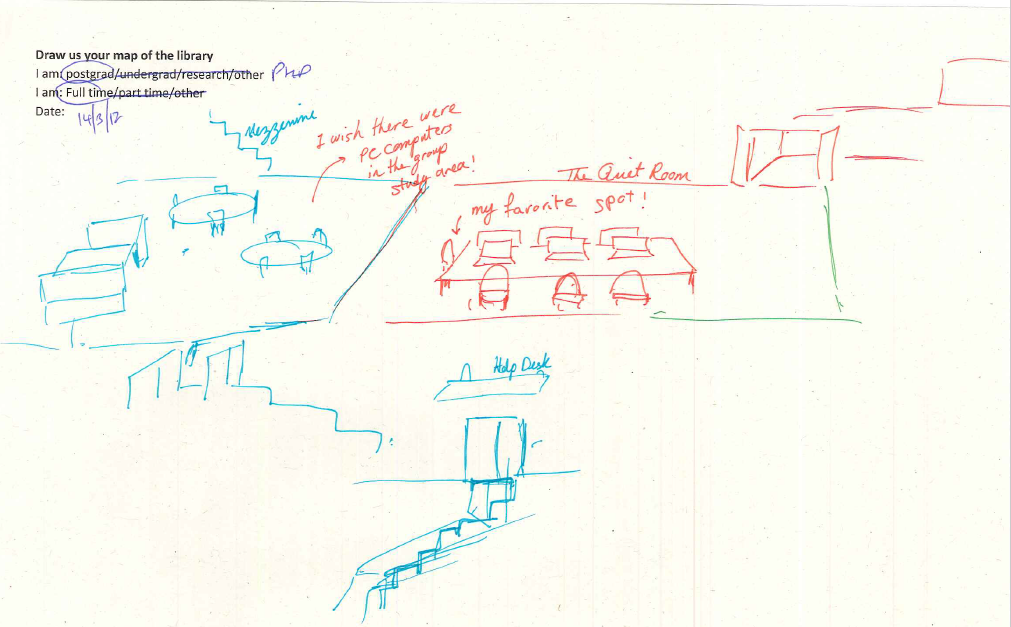 Draw us your map of the library
I am: postgrad/undergrad/research/other PHD
I am: Full time/part time/other
Date: 14/3/12
Mezzenine
I wish there were
PC computers
in the group
study area!
The Quiet Room
my favorite spot!
Help Desk